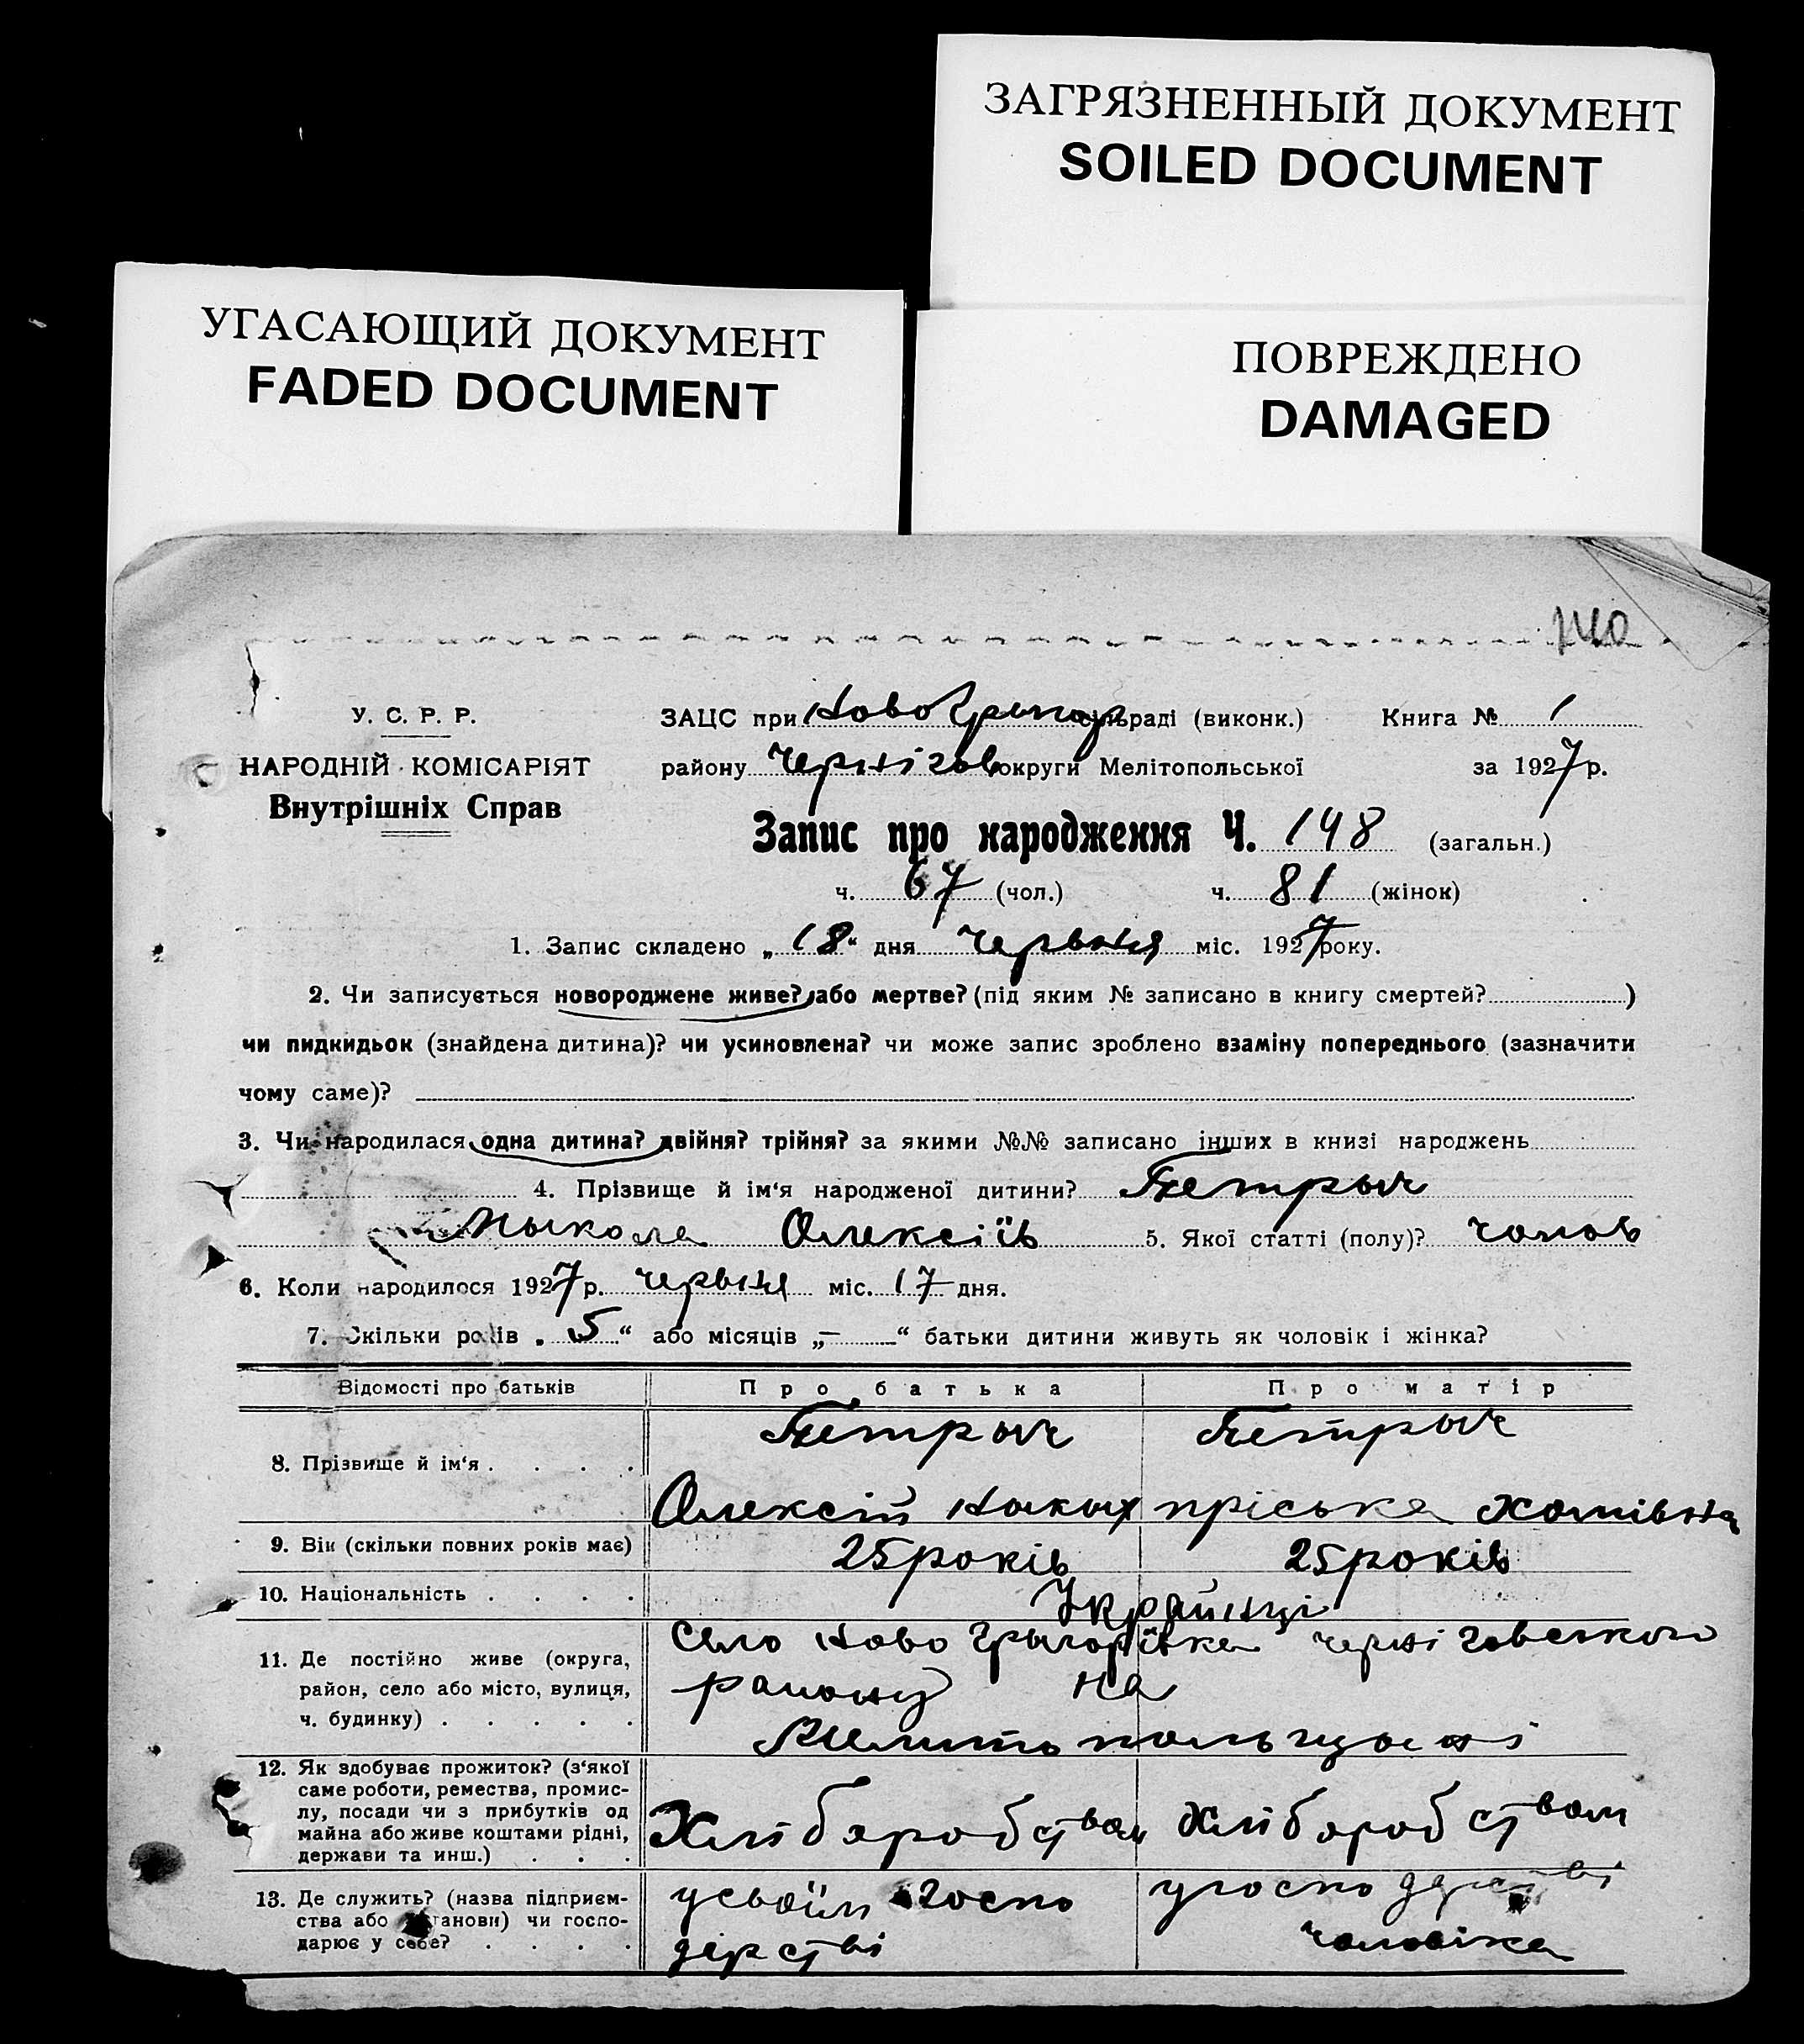 ЗАГРЯЗНЕННЫЙ ДОКУМЕНТ
SOILED DOCUMENT
УГАСАЮЩИЙ ДОКУМЕНТ
FADED DOCUMENT
ПОВРЕЖДЕНО
DAMAGED
140
У. С. Р. Р.
НАРОДНІЙ КОМІСАРІЯТ
Внутрішніх Справ
ЗАЦС при Ново Григор сільраді (виконк.) Книга № 1
району Чернігов округи Мелітопольської за 1927 р.
Запис про народження Ч. 148 (загальн.)
ч. 67 (чол.) ч. 81 (жінок)
1. Запис складено „18“ дня червня міс. 1927 року.
2. Чи записується новороджене живе? або мертве? (під яким № записано в книгу смертей? )
чи пидкидьок (знайдена дитина)? чи усиновлена? чи може запис зроблено взаміну попереднього (зазначити
чому саме)?
3. Чи народилася одна дитина? двійня? трійня? за якими №№ записано інших в книзі народжень
4. Прізвище й ім‘я народженої дитини? Петрыч
Мыкола Олексіїв 5. Якої статті (полу)? чолов
6. Коли народилося 1927 р. червня міс. 17 дня.
7. Скільки років „5“ або місяців „—“ батьки дитини живуть як чоловік і жінка?
Відомості про батьків Про батька Про матір
8. Прізвище й ім‘я Петрыч Петрыч
Олексій Пріська Хомівна
9. Вік (скільки повних років має) 25 років 25 років
10. Національність Українці
11. Де постійно живе (округа, район, село або місто, вулиця, ч. будинку) Село Ново Грыгорівка Черніговського
району на
Мелитопольщыні
12. Як здобуває прожиток? (з‘якої саме роботи, ремества, промислу, посади чи з прибутків од майна або живе коштами рідні, держави та инш.) Хліборобством Хліборобством
13. Де служить? (назва підприємства або установи) чи господарює у себе? у своїм господарстві у господарстві
чоловіка